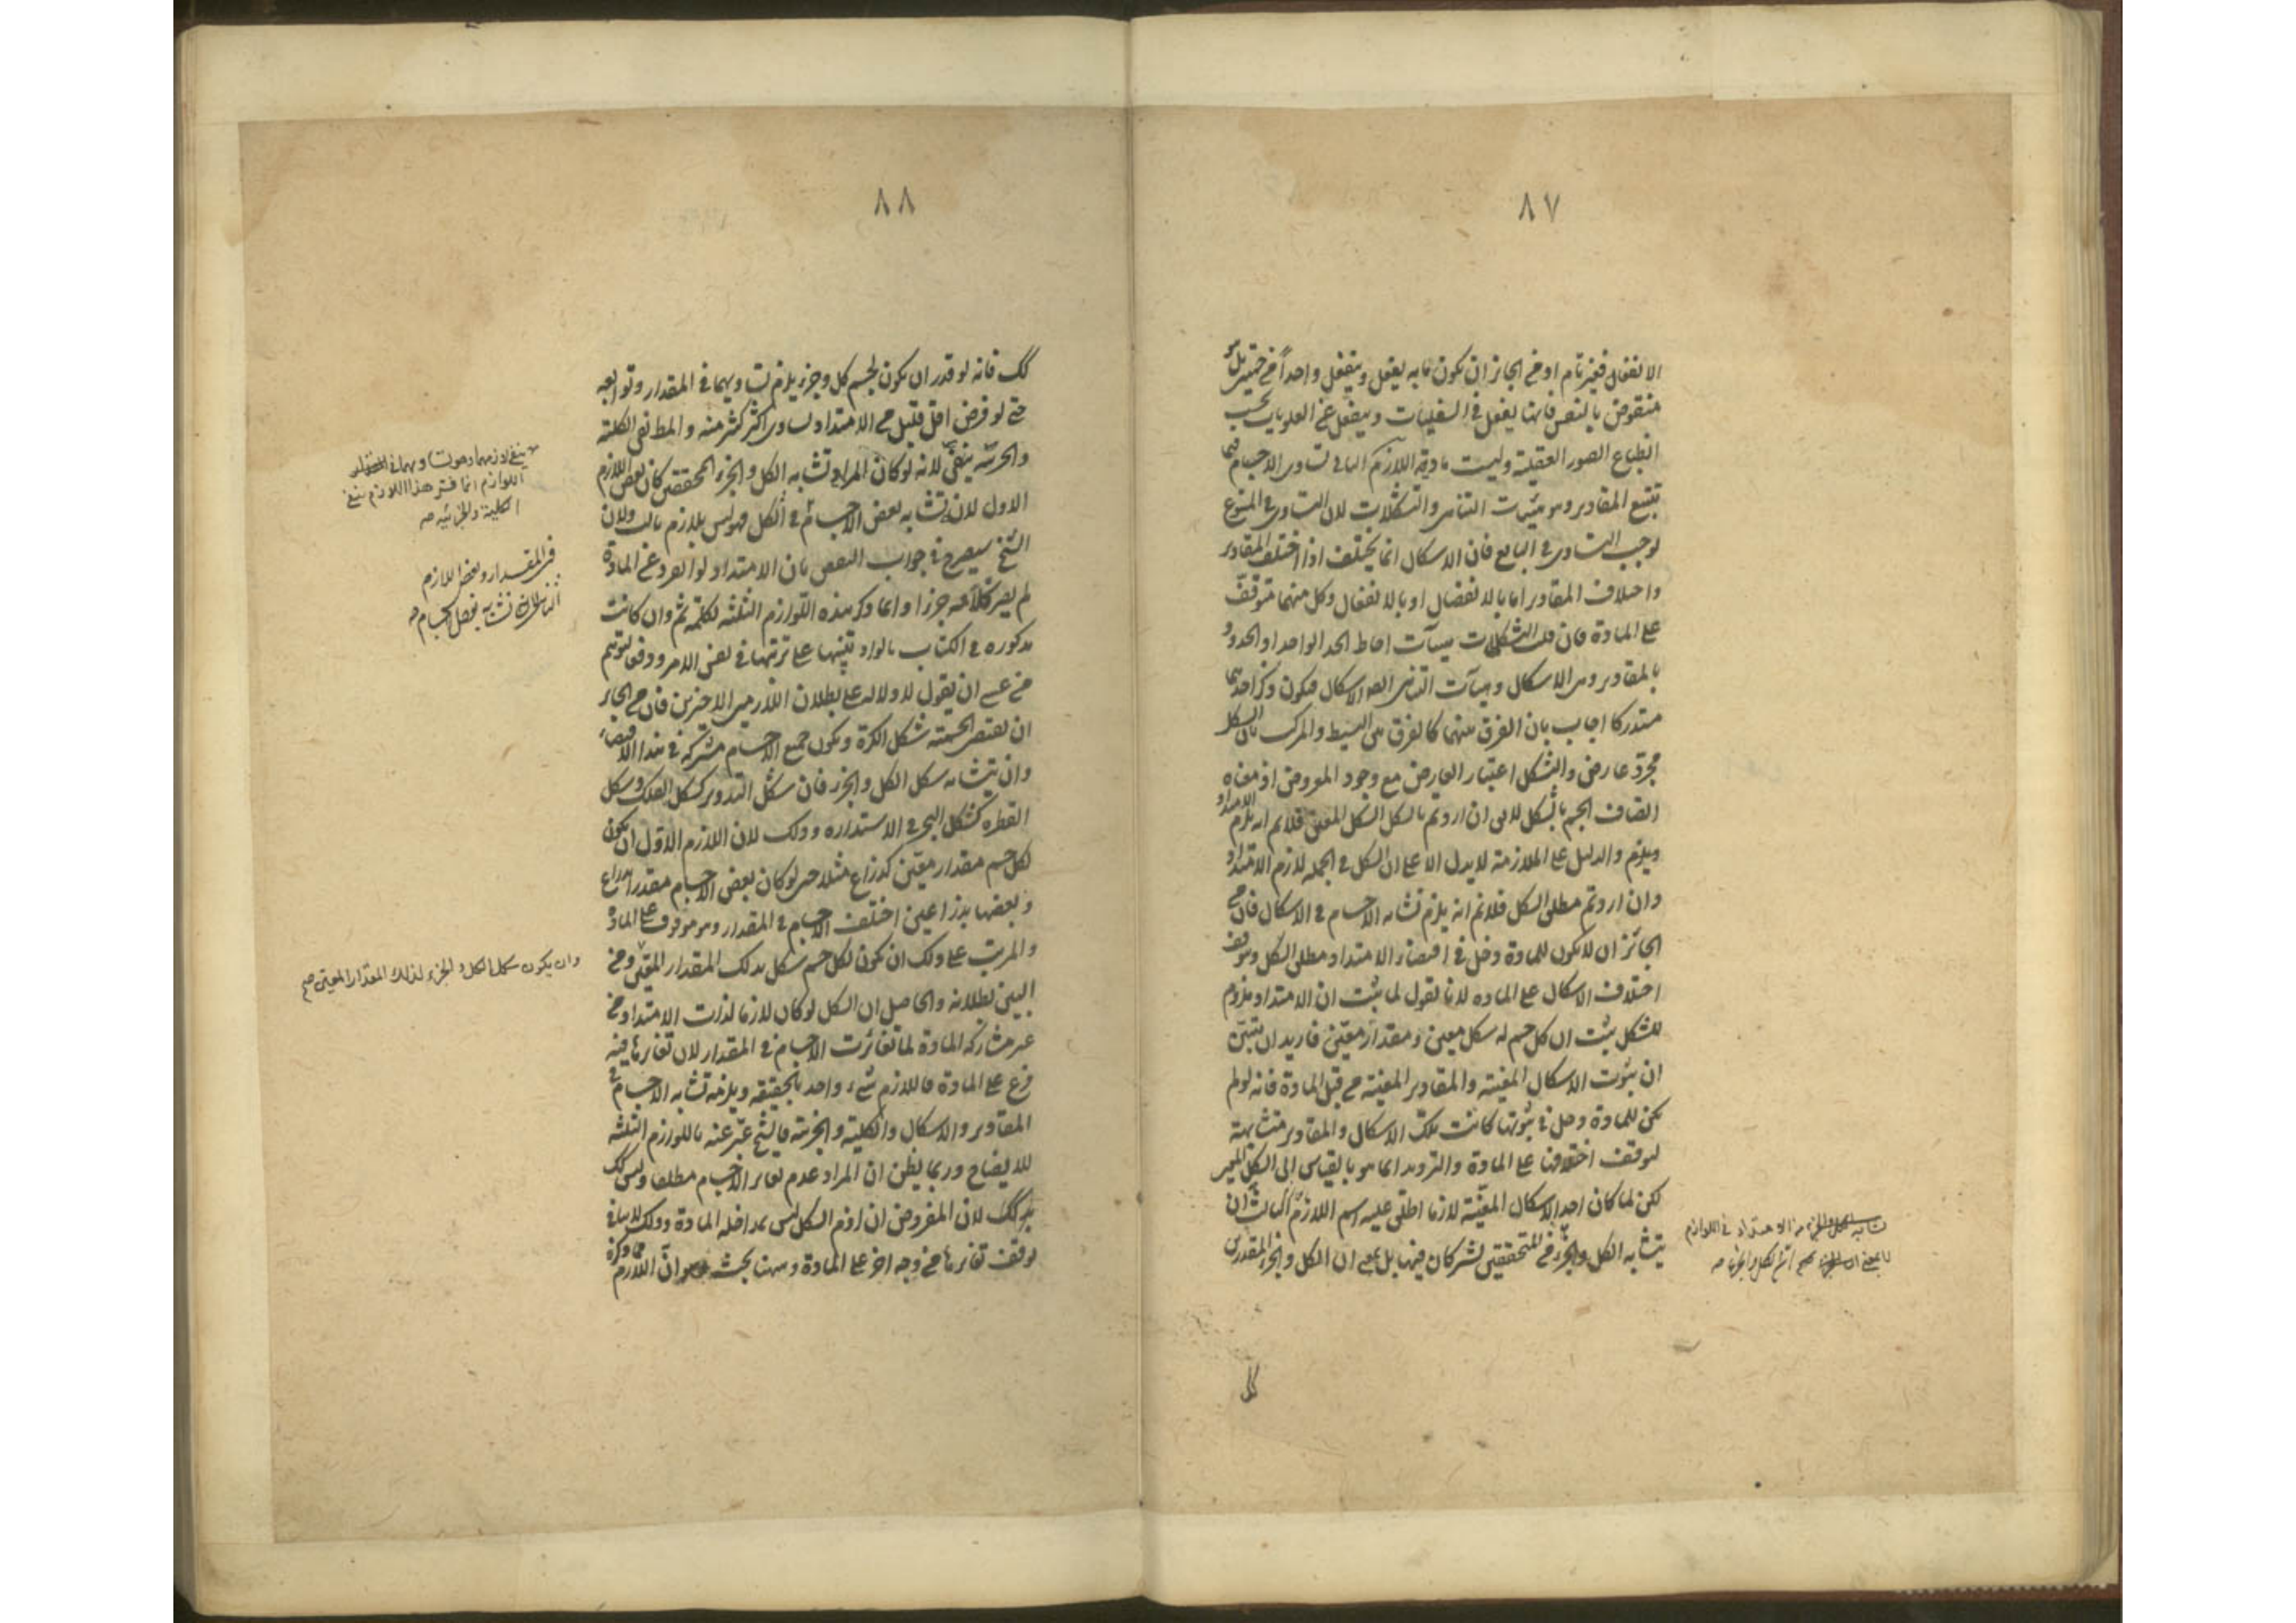 ٨٧
الانفعال فغير تام اذ من الجائز ان يكون ما به يفعل وينفعل واحداً من جهتين بل هو
منقوض بالنفس فانها يفعل في السفليات وينفعل عن العلويات بحسب
انطباع الصور العقلية وليست مادية اللازم الثاني تساوى الاجسام فيما
يتبع المقادير وهو هيئات التناهى والتشكلات لان التساوى في المتبوع
يوجب التساوى في التابع فان الاشكال انما يختلف اذا اختلف المقادير
واختلاف المقادير اما بالانفصال او بالانفعال وكل منهما متوقف
على المادة فان قلت التشكلات هيئات احاطة الحد الواحد او الحدود
بالمقادير وهى الاشكال وهيئات التناهى ايضا الاشكال فيكون ذكر احديهما
مستدركا اجاب بان الفرق بينهما كالفرق بين البسيط والمركب فان الشكل
مجرد عارض والتشكل اعتبار العارض مع وجود المعروض اذ معناه
اتصاف الجسم بالشكل لا يق ان اردتم بالشكل الشكل المعين فلا نم انه يلزم الامتداد
ويلزم والدليل على الملازمة لا يدل الا على ان الشكل في الجملة لازم الامتداد
وان اردتم مطلق الشكل فلا نم انه يلزم تشابه الاجسام في الاشكال فان من
الجائز ان لا يكون للمادة دخل في اقتضاء الامتداد مطلق الشكل ويتوقف
اختلاف الاشكال على المادة لانا نقول لما ثبت ان الامتداد ملزوم
للشكل ثبت ان كل جسم له شكل معين ومقدار معين فاريد ان يتبين
ان ثبوت الاشكال المعينة والمقادير المعينة من قبل المادة فانه لو لم
يكن للمادة دخل في ثبوتها كانت تلك الاشكال والمقادير متشابهة
لتوقف اختلافها على المادة والترديد انما هو بالقياس الى الشكل المعين
لكن لما كان احد الاشكال المعينة لازما اطلق عليه اسم اللازم الثالث ان
يتشابه الكل والجزء المتحققين يشتركان فيها بل بمعنى ان الكل والجزء المقدرين
تشابه من الامتداد في اللوازم
لا بمعنى ان الكل والجزء
٨٨
كك فانه لو قدر ان يكون لجسم كل وجزء يلزم تساويهما في المقدار وتوابعه
حتى لو فرض اقل قليل من الامتداد لساوى اكثر كثير منه والمط نفى الكلية
والجزئية لانه لو كان المراد تشابه الكل والجزء المحققين كان بعض اللازم
الاول لان تشابه بعض الاجسام في الكل فهو ليس بلازم ثالث ولان
الشيخ سيصرح في جواب النقض بان الامتداد لو انفرد عن المادة
لم يصر كلا عن جزء او انما ذكر هذه اللوازم الثلثة لكلمة ثم وان كانت
مذكورة في الكتاب بالواو تنبيها على ترتبها في نفس الامر ودفعا لتوهم
من عسى ان يقول لا دلالة على بطلان اللازمين الاخيرين فان من الجائز
ان يقتضى الجسمية شكل الكرة ويكون جميع الاجسام مشتركة في هذا الاقتضاء
وان يتشابه شكل الكل والجزء فان شكل التدوير كشكل الفلك وشكل
القطرة كشكل البحر في الاستدارة وذلك لان اللازم الاول ان يكون
لكل جسم مقدار معين كذراع مثلا حتى لو كان بعض الاجسام مقدرا بذراع
وبعضها بذراعين اختلف الاجسام في المقدار وهو موقوف على المادة
والمرتب على ذلك ان يكون لكل جسم شكل بذلك المقدار المعين ومن
البين بطلانه والحاصل ان الشكل لو كان لازما لذات الامتداد من
غير مشاركة المادة لما تغايرت الاجسام في المقدار لان تغايرها فيه
فرع على المادة فاللازم شىء واحد بالحقيقة ويلزمه تشابه الاجسام في
المقادير والاشكال والكلية والجزئية فالشيخ عبر عنه باللوازم الثلثة
للايضاح وربما يظن ان المراد عدم تغاير الاجسام مطلقا وليس كك
لان المفروض ان لزوم الشكل ليس بمداخلة المادة وذلك لا ينافى
توقف تغايرها من وجه اخر على المادة وههنا بحث وهو ان اللازم مما ذكره
اللوازم انما فسر هذا اللازم بنفى
الكلية والجزئية صه
في المقدار وبعض اللازم
الثانى تشابه بعض الاجسام صه
وان يكون شكل الكل والجزء لذلك المقدار المعين صح